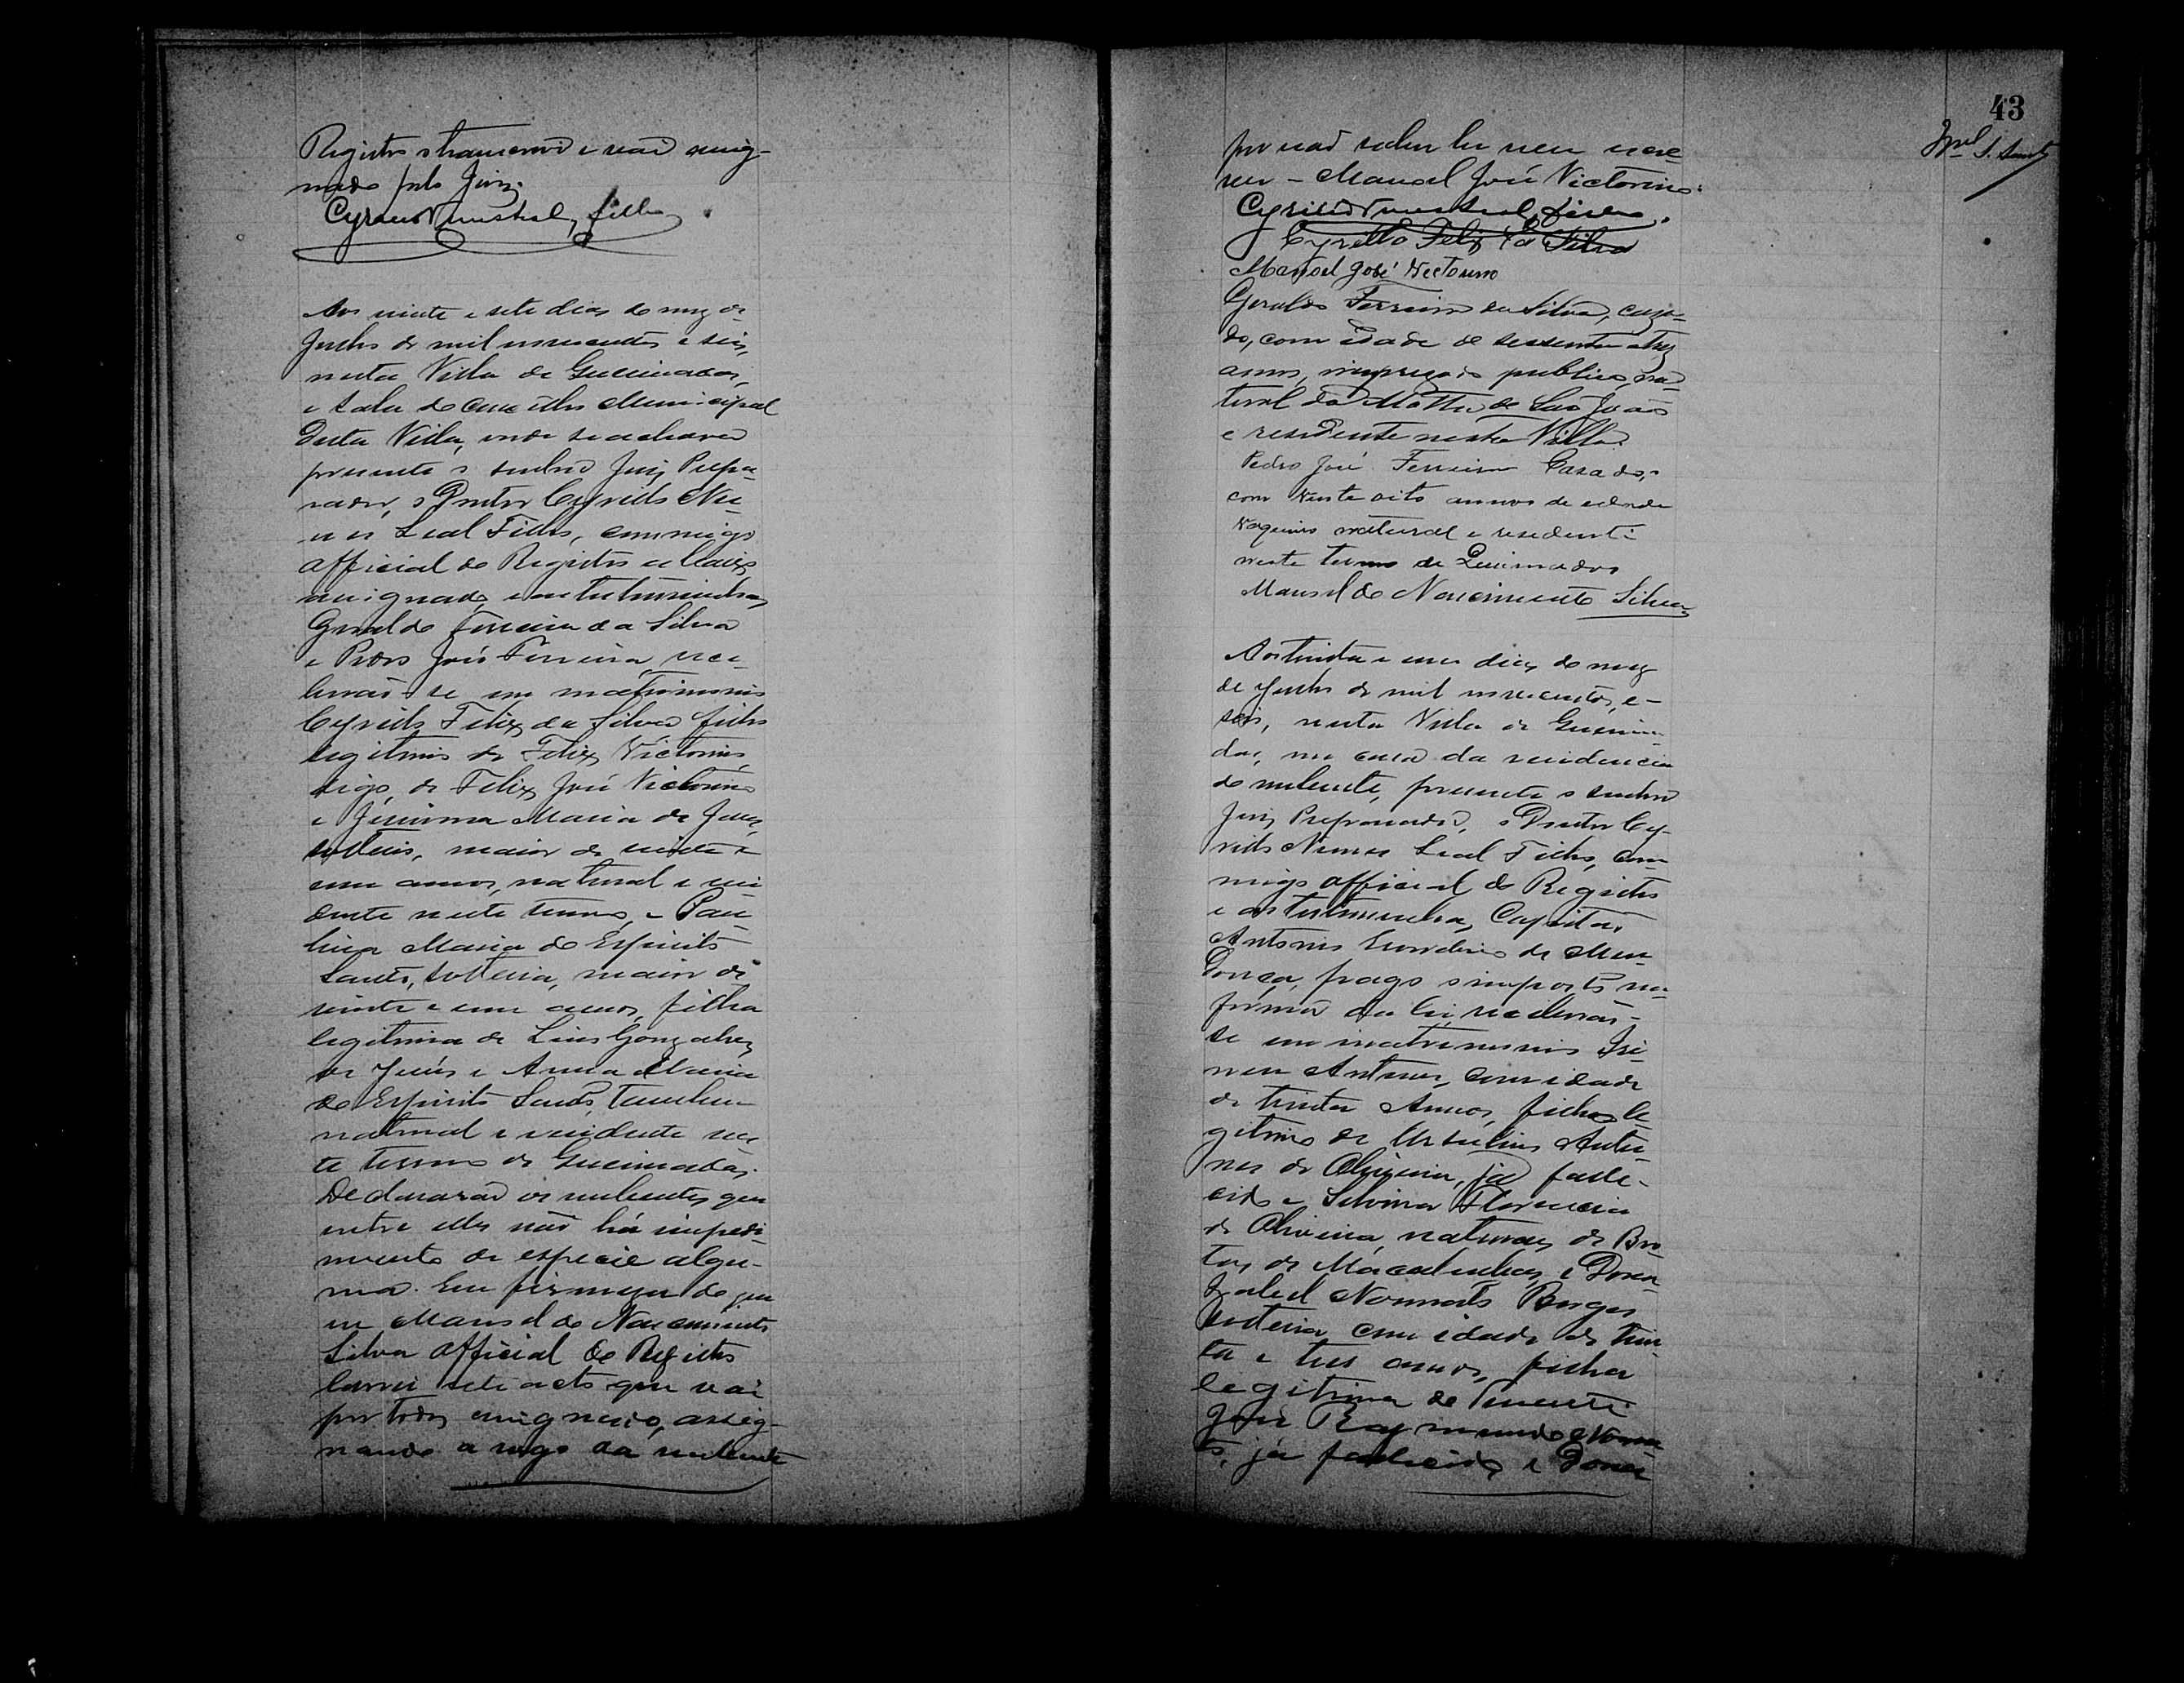 Registro o transcrevi e vai assig-
nado pelo Juiz.
Cyrillo Leal, filho
Aos vinte e sete dias do mez de
Junho de mil novecentos e seis,
nesta Villa de Queimadas,
e sala do concelho Municipal
desta Villa, onde se achava
presente o senhor Juiz Prepa-
rador, o Doutor Cyrillo Nu-
nes Leal Filho, commigo
official do Registro abaixo
assignado, e as testemunhas,
Geraldo Ferreira da Silva
e Pedro José Ferreira, rece-
berão-se em matrimonio
Cyrillo Felix da Silva filho
legitimo de Felix Victorino,
digo, de Felix José Victorino
e Jesuina Maria de Jesus,
solteiro, maior de vinte e
um annos, natural e resi-
dente neste termo, e Pau-
lina Maria do Espirito
Santo, solteira, maior de
vinte e um annos, filha
legitima de Luis Gonçalves
de Jesus e Anna Maria
do Espirito Santo, tambem
natural e residente nes-
te termo de Queimadas.
Declararão os nubentes que
entre elles não há impedi-
mento de especie algu-
ma. Em firmeza do que
eu Manoel do Nascimento
Silva official do Registro
lavrei este acto que vai
por todos assignado, assig-
nando a rogo da nubente
43
por não saber ler nem escre-
ver – Manoel José Victorino.
Cyrillo Leal, filho.
Cyrillo Felix da Silva
Manoel José Victorino
Geraldo Ferreira da Silva, caza-
do, com idade de sessenta e tres
annos, empregado publico, na-
tural da Matta de São João
e residente nesta Villa.
Pedro José Ferreira Casado,
com vinte oito annos de edade
Vaqueiro natural e residente
neste termo de Queimadas
Manoel do Nascimento Silva
Aos trinta e um dias do mez
de Junho de mil novecentos e
seis, nesta Villa de Queima-
das, na casa da residencia
do nubente, presente o senhor
Juiz Preparador, o Doutor Cy-
rillo Nunes Leal Filho, com-
migo official do Registro
e as testemunhas, Capitão
Antonio de Men-
donça, pago o imposto na
forma da lei, receberão-
se em matrimonio
Antunes, com idade
de trinta Annos, filho le-
gitimo de Ursulino Antu-
nes de Oliveira, já falle-
cido e Silvina Florencia
de Oliveira, natural de Bro-
tas de Macahubas, e Dona
Izabel Nonnato Borges
solteira, com idade de trin-
ta e tres annos, filha
legitima do Tenente
José Raymundo Nonna-
to, já fallecido, e Dona